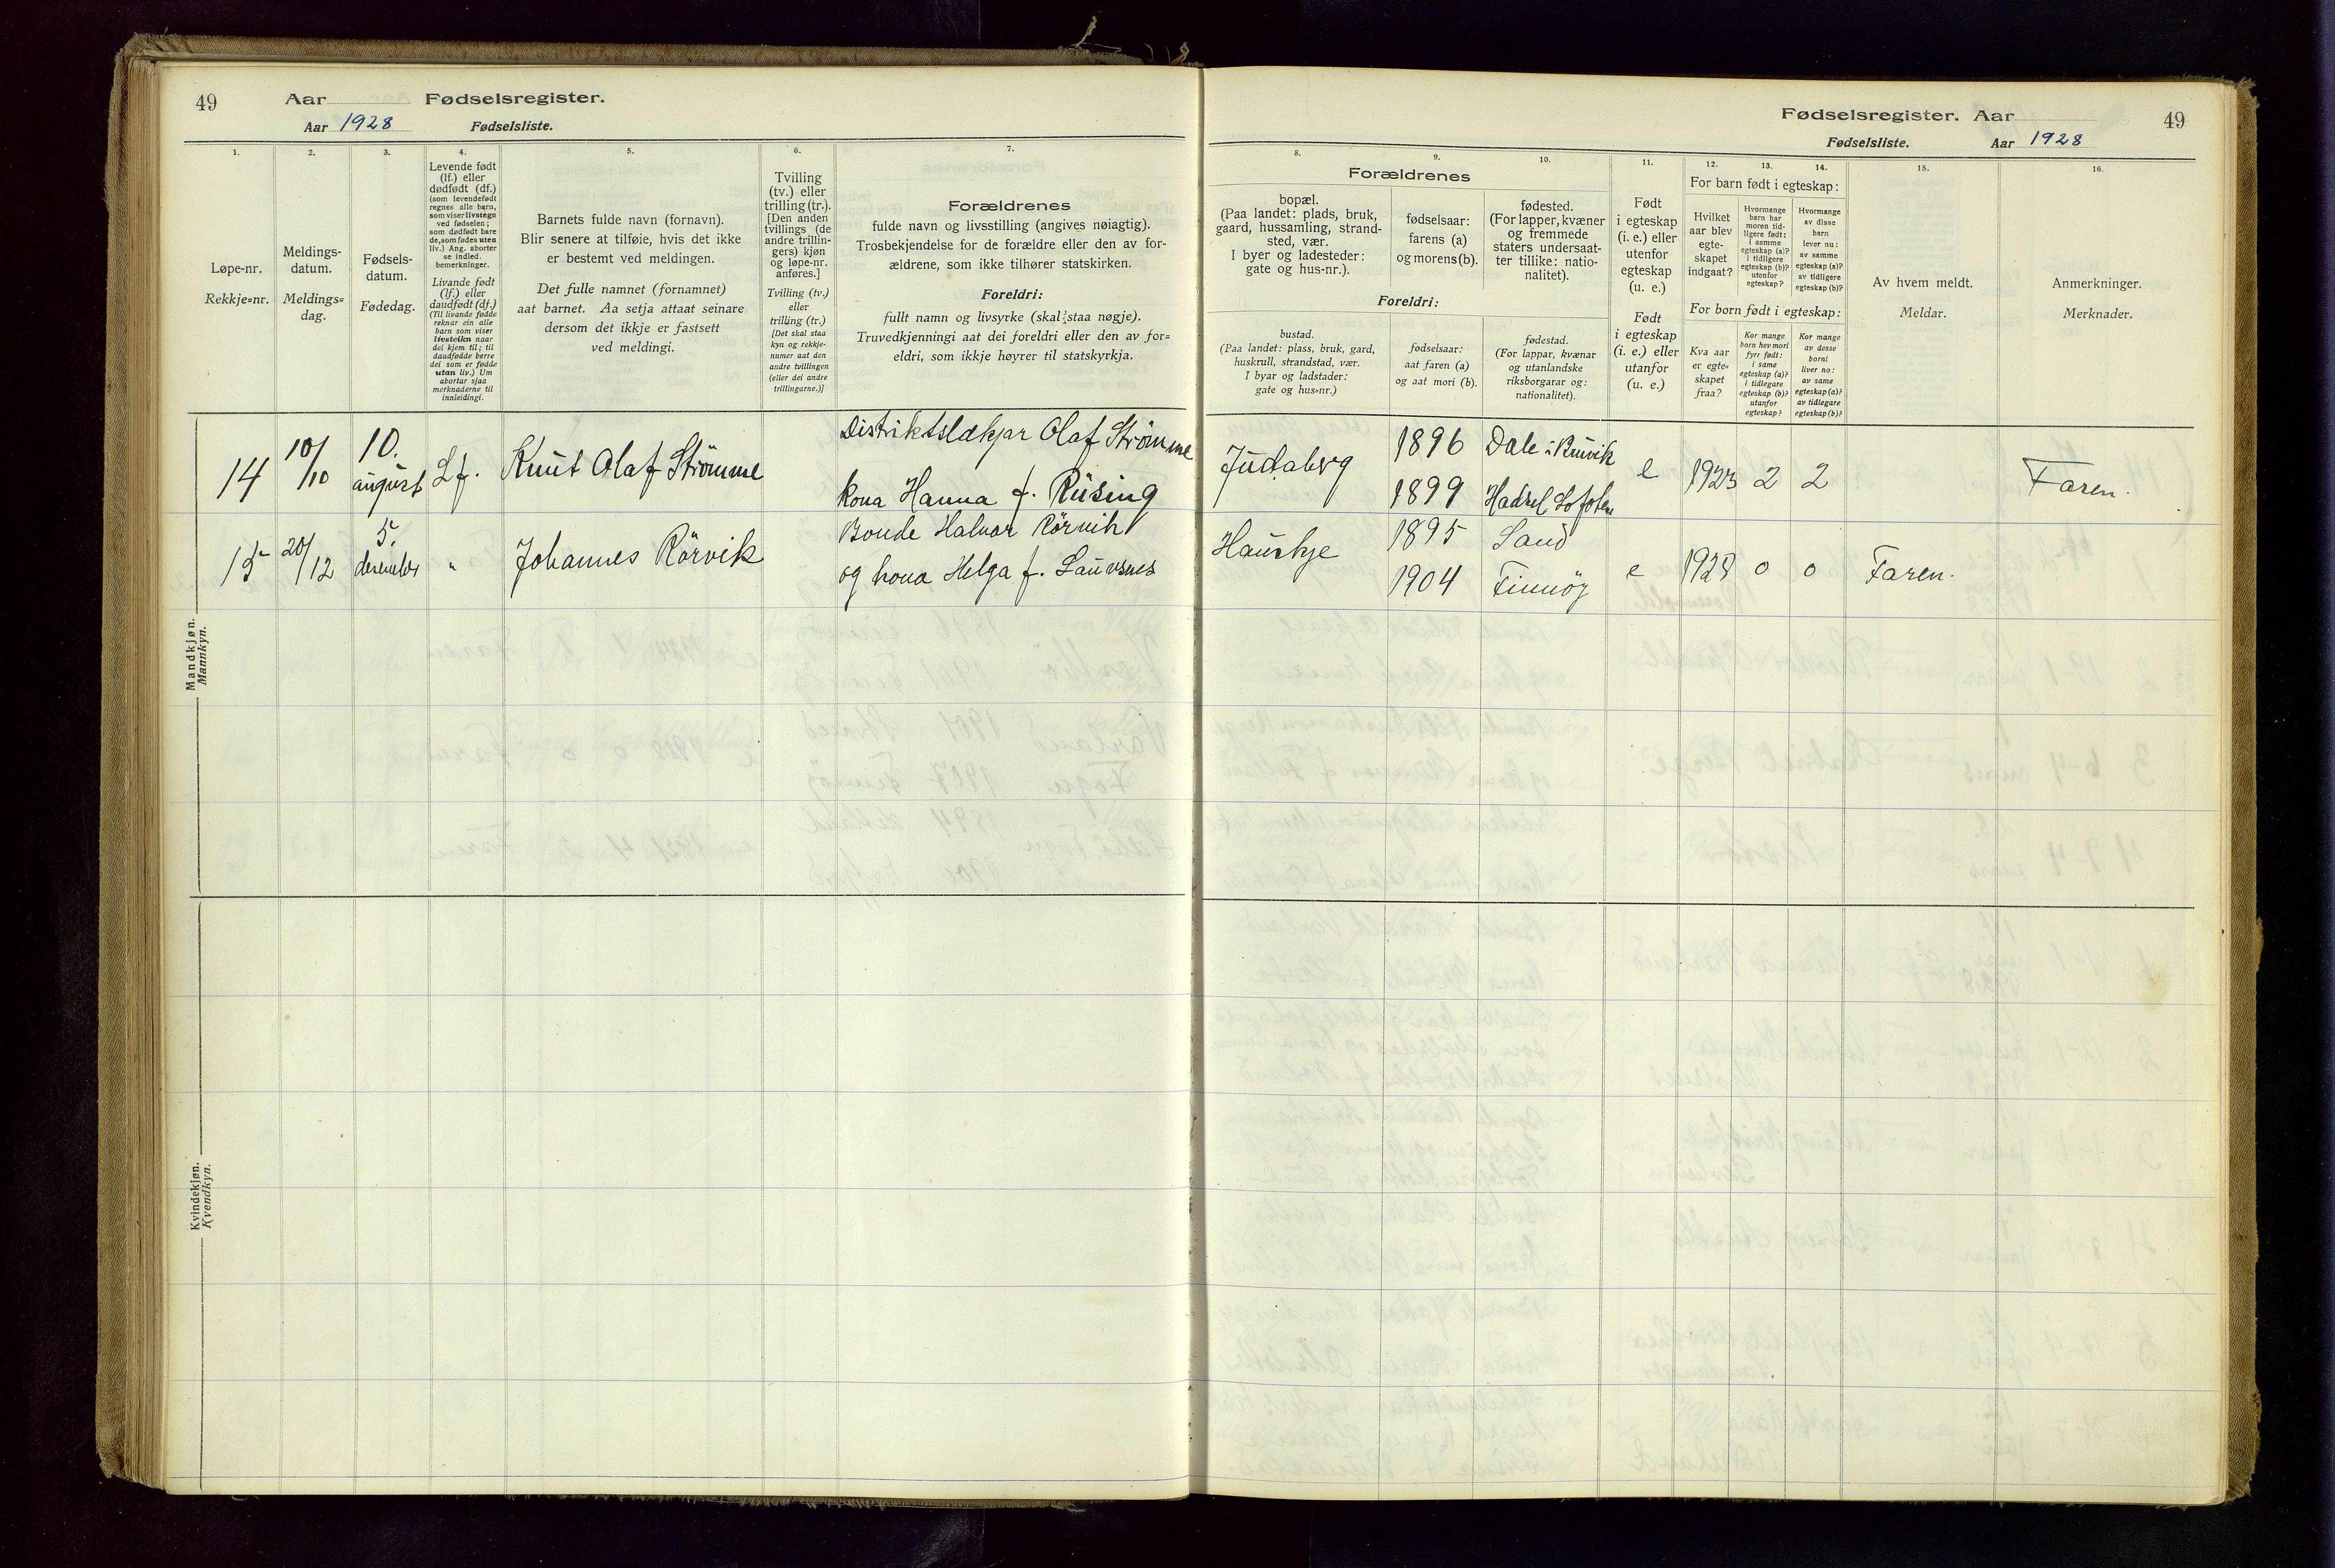 49 Aar Fødselsregister.
Aar 1928 Fødselsliste.
1. 2. 3. 4. 5. 6. 7.
Løpe-nr.
Rekkje=nr.
Meldings-
datum.
Meldings=
dag.
Fødsels-
datum.
Fødedag.
Levende født
(lf.) eller
dødfødt (df.)
(som levendefødt
regnes alle barn,
som viser livstegn
ved fødselen;
som dødfødt bare
de, som fødes uten
liv.) Ang. aborter
se indled.
bemerkninger.
Livande født
(lf.) eller
daudfødt (df.)
(Til livande fødde
reknar ein alle
barn som viser
livsteikn naar
dei kjem til; til
daudfødde berre
dei som er fødde
utan liv.) Um
abortar sjaa
merknaderne til
innleidingi.
Barnets fulde navn (fornavn).
Blir senere at tilføie, hvis det ikke
er bestemt ved meldingen.
Det fulle namnet (fornamnet)
aat barnet. Aa setja attaat seinare
dersom det ikkje er fastsett
ved meldingi.
Tvilling
(tv.) eller
trilling (tr.).
[Den anden
tvillings (de
andre trillin-
gers) kjøn
og løpe-nr.
anføres.]
Tvilling (tv.)
eller
trilling (tr.)
[Det skal staa
kyn og rekkje-
numer aat den
andre tvillingen
(eller dei andre
trillingarne.)]
Forældrenes
fulde navn og livsstilling (angives nøiagtig).
Trosbekjendelse for de forældre eller den av for-
ældrene, som ikke tilhører statskirken.
Foreldri:
fullt namn og livsyrke (skal staa nøgje).
Truvedkjenningi aat dei foreldri eller den av for=
eldri, som ikkje høyrer til statskyrkja.
Mandkjøn.
Mannkyn.
14 10/10 10. august Lf. Knut Olaf Strömme Distriktslækjar Olaf Strömme
kona Hanna f. Rüsing
15 20/12 5. desember " Johannes Rörvik Bonde Halvor Rörvik
og kona Helga f.
Kvindekjøn.
Kvendkyn.
Fødselsregister. Aar 49
Fødselsliste. Aar 1928
8. 9. 10. 11. 12. 13. 14. 15. 16.
Forældrenes
bopæl.
(Paa landet: plads, bruk,
gaard, hussamling, strand-
sted, vær.
I byer og ladesteder:
gate og hus-nr.).
fødselsaar:
farens (a)
og morens (b).
fødested.
(For lapper, kvæner
og fremmede
staters undersaat-
ter tillike: natio-
nalitet).
Foreldri:
bustad.
(Paa landet: plass, bruk, gard,
huskrull, strandstad, vær.
I byar og ladstader:
gate og hus=nr.)
fødselsaar:
aat faren (a)
og aat mori (b).
fødestad.
(For lappar, kvænar
og utanlandske
riksborgarar og:
nationalitet).
Født
i egteskap
(i. e.) eller
utenfor
egteskap
(u. e.)
Født
i egteskap
(i. e.) eller
utanfor
(u. e.)
For barn født i egteskap:
Hvilket
aar blev
egte-
skapet
indgaat?
Hvormange
barn har
moren tid-
ligere født:
i samme
egteskap (a)?
i tidligere
egteskap (b)?
utenfor
egteskap?
Hvormange
av disse
barn
lever nu:
av samme
egteskap (a)?
av tidligere
egteskap (b)?
For born født i egteskap:
Kva aar
er egte=
skapet
fraa?
Kor mange
born hev mori
fyrr født:
i same
egteskap (a)?
i tidlegare
egteskap (b)?
utanfor
egteskap?
Kor mange
av desse
borni
liver no:
av same
egteskap (a)?
av tidlegare
egteskap (b)?
Av hvem meldt.
Meldar.
Anmerkninger.
Merknader.
Judaberg 1896 Dale i Bruvik e 1923 2 2 Faren.
1899 Hadsel Lofoten
Hauskje 1895 Sand e 1928 0 0 Faren.
1904 Finnöy